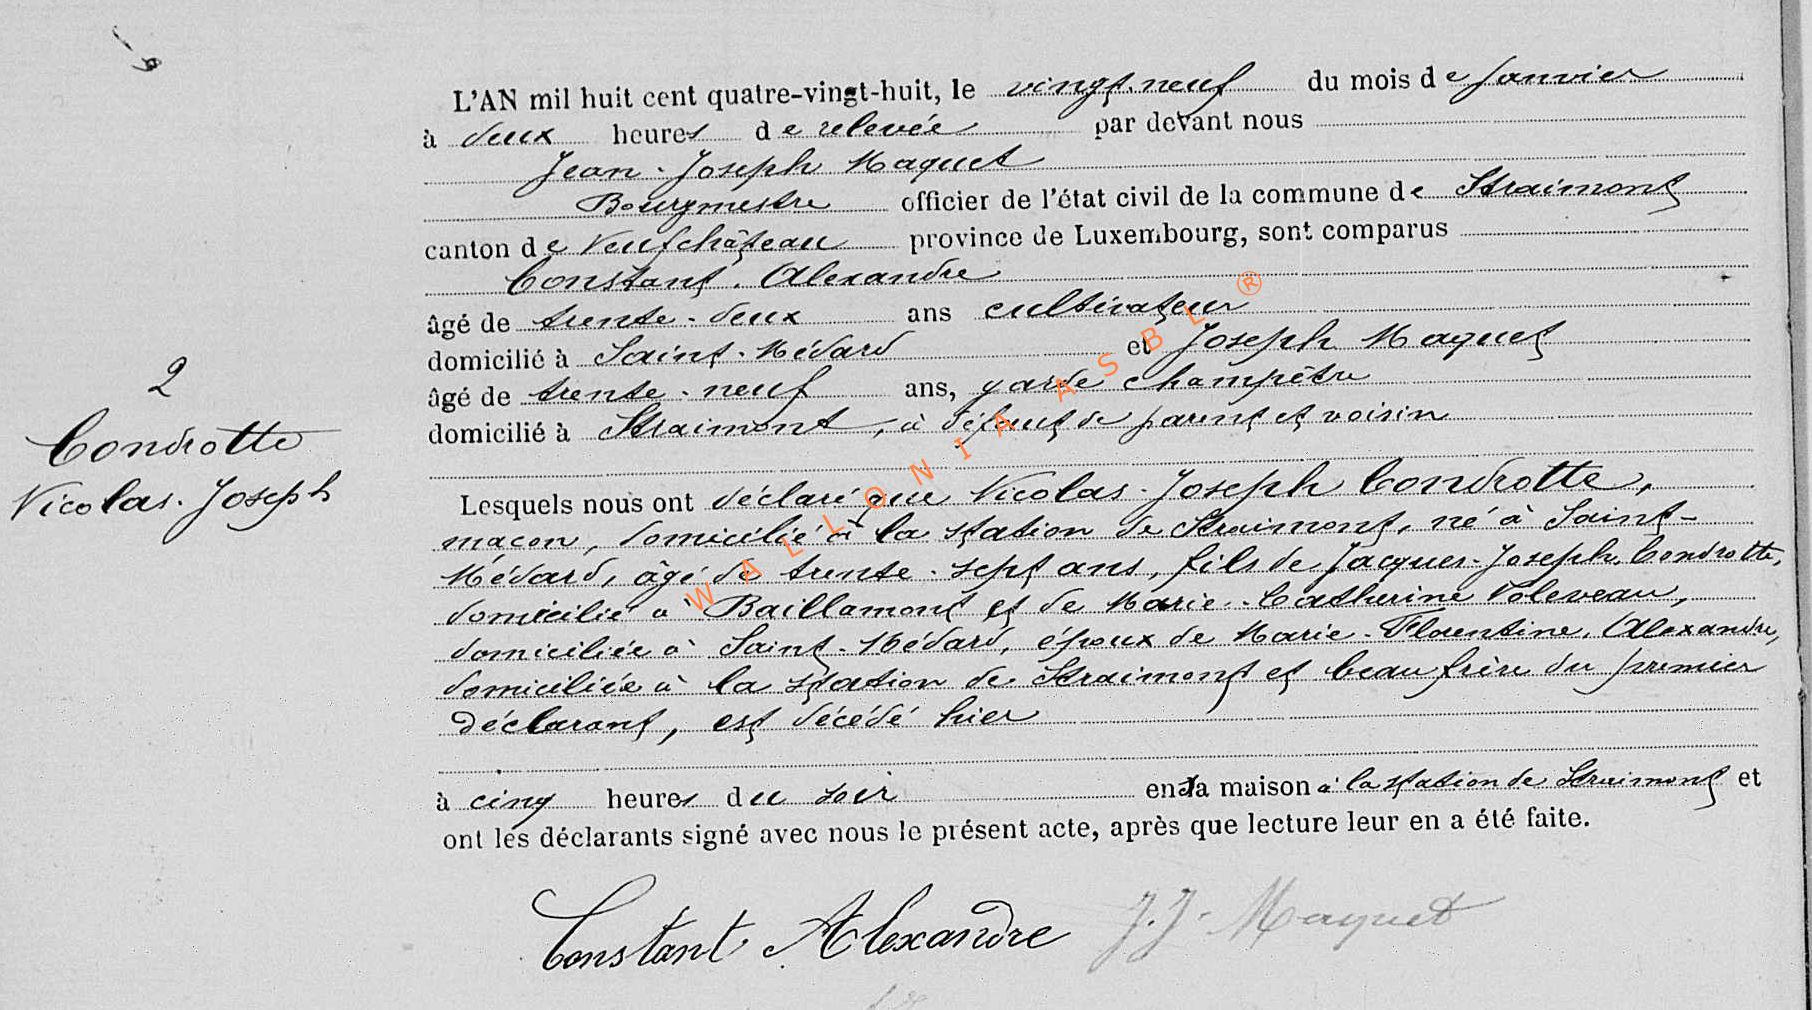 L'AN mil huit cent quatre-vingt-huit, le vingt-neuf du mois de Janvier
à deux heures de relevée par devant nous
Jean-Joseph Maquet
Bourgmestre officier de l'état civil de la commune de Straimont
canton de Neufchâteau province de Luxembourg, sont comparus
Constant Alexandre
âgé de trente-deux ans cultivateur
domicilié à Saint-Médard et Joseph Maquet
âgé de trente-neuf ans, garde champêtre
domicilié à Straimont, à défaut de parent et voisin
2
Condrotte
Nicolas-Joseph
Lesquels nous ont déclaré que Nicolas-Joseph Condrotte,
maçon, domicilié à la station de Straimont, né à Saint-
Médard, âgé de trente-sept ans, fils de Jacques-Joseph Condrotte,
domicilié à Baillamont et de Marie-Catherine Voleveau,
domiciliée à Saint-Médard, époux de Marie-Florentine Alexandre,
domiciliée à la station de Straimont et beau frère du premier
déclarant, est décédé hier
à cinq heures du soir en la maison à la station de Straimont et
ont les déclarants signé avec nous le présent acte, après que lecture leur en a été faite.
Constant Alexandre J.J. Maquet
WALLONIA ASBL ®